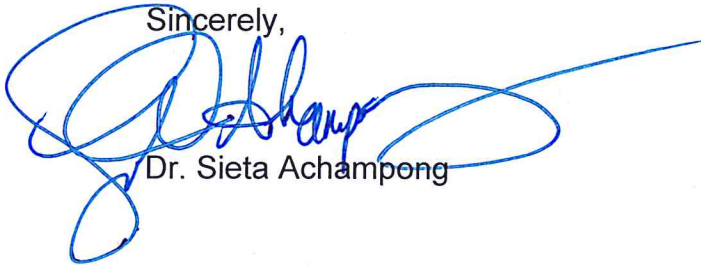 Sincerely,
Dr. Sieta Achampong